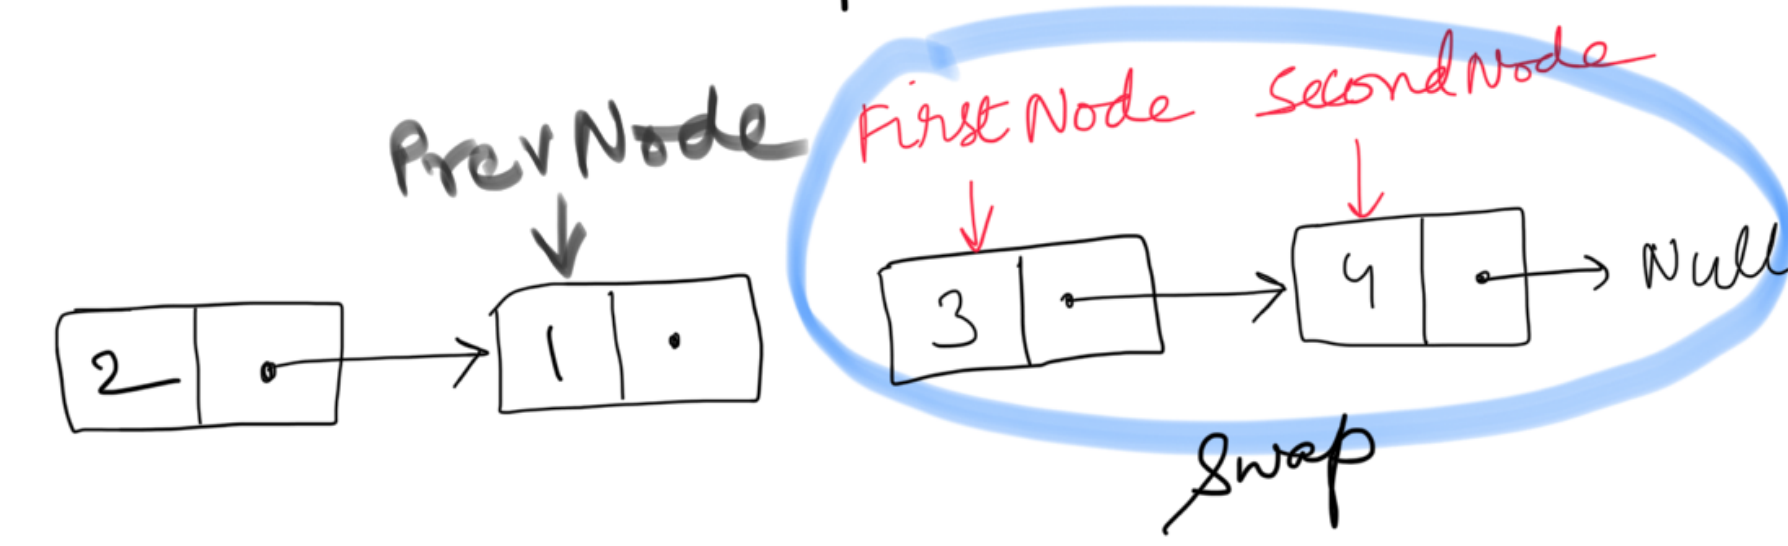 PrevNode
FirstNode
SecondNode
2
1
3
4
Null
Swap